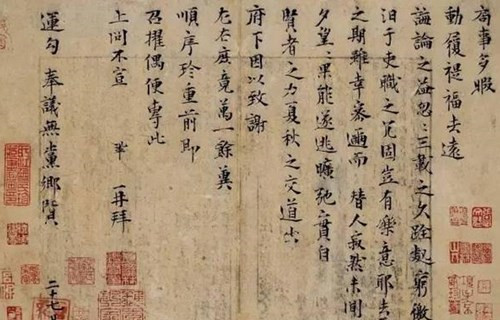 局事多暇
動履禔福去遠
誨論之益忽忽三載之久跧處窮徼
汩於吏職之冗固豈有樂意耶去
之期雖幸密邇而替人寂然未聞
夕望望果能遂逃曠弛實自
賢者之力夏秋之交道出
府下因以致謝
左右庶竟萬一餘冀
順序珍重前即
召擢偶便專此
上問不宣 鞏再拜
運勾奉議無黨鄉賢
二十七